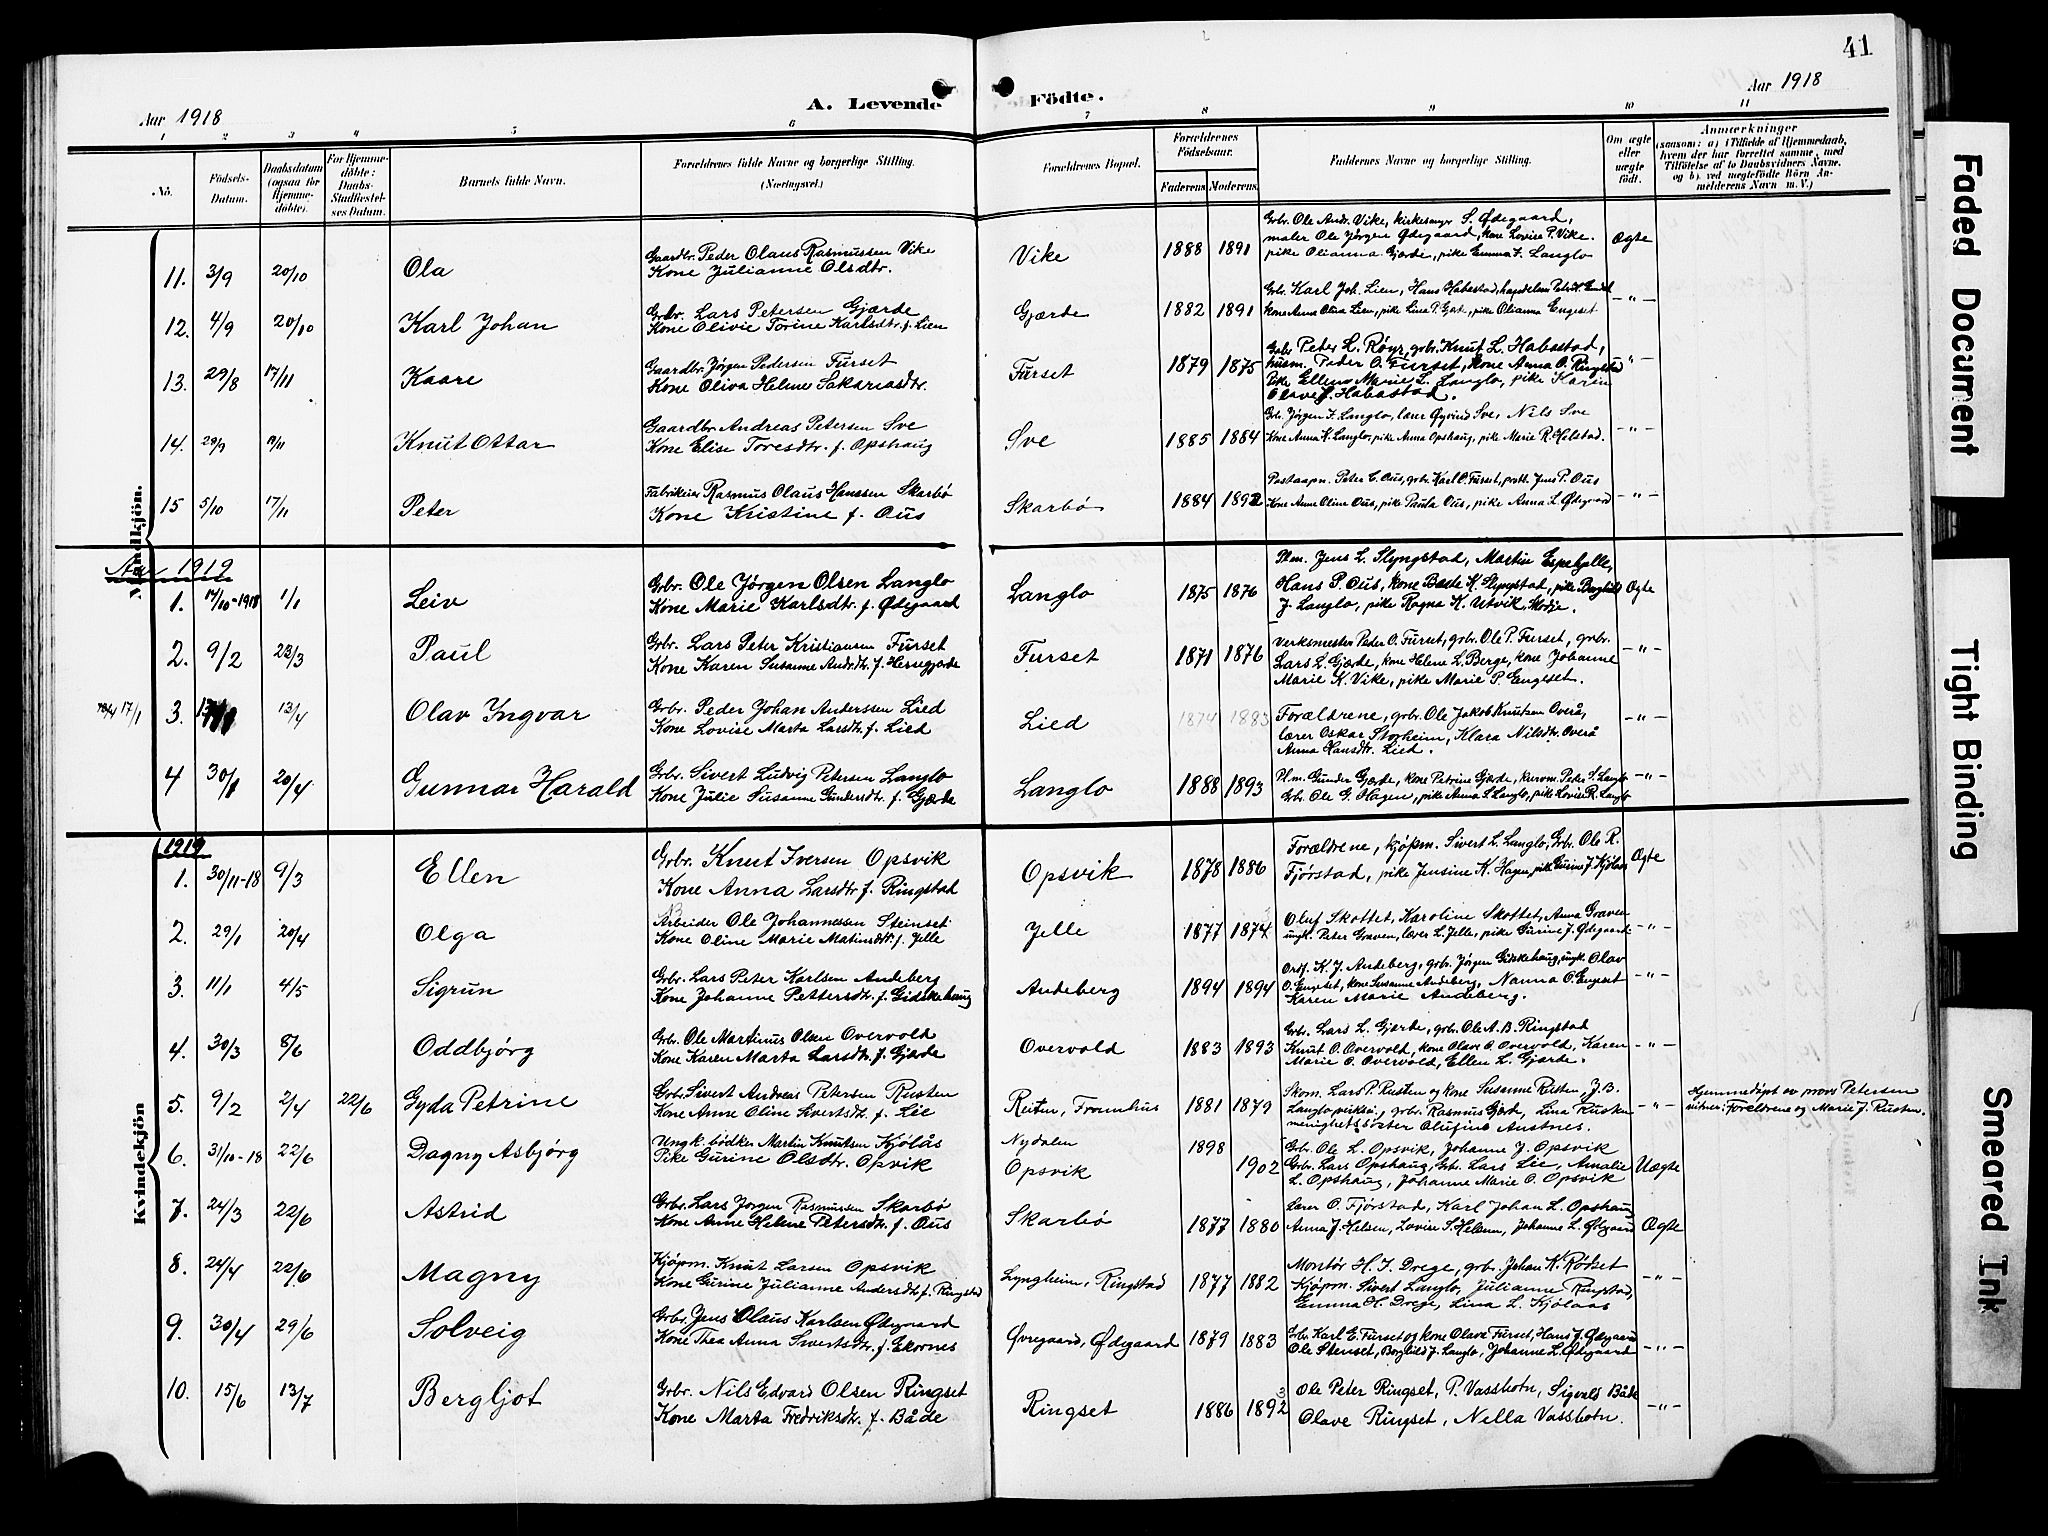 41
Aar 1918
A. Levende Födte.
Aar 1918
1 2 3 4 5 6 7 8 9 10 11
No.
Födsels-Datum.
Daabsdatum (ogsaa for Hjemme-döbte).
For Hjemme-döbte: Daabs-Stadfæstel-ses Datum.
Barnets fulde Navn.
Forældrenes fulde Navne og borgerlige Stilling. (Næringsvei.)
Forældrenes Bopæl.
Forældrenes Födselsaar.
Faderens. Moderens.
Faddernes Navne og borgerlige Stilling.
Om ægte eller uægte födt.
Anmærkninger
(saasom: a) i Tilfælde af Hjemmedaab, hvem der har forrettet samme, med Tilföielse af to Daabsvidners Navne, og b) ved uegtefödte Börn An-melderens Navn m. V.)
Mandkjön.
11. 3/9 20/10 Ola
Gaardbr. Peder Olaus Rasmussen Vike
Kone Julianne Olsdtr.
Vike 1888 1891
Grbr. Ole Andr. Vike, kirkesangr S. Ødegaard,
maler Ole Jørgen Ødegaard, kone Lovise P. Vike.
pike Olianna Gjærde, pike Emma J. Langlo
Ægte
12. 4/9 20/10 Karl Johan
Grbr. Lars Petersen Gjærde
Kone Olivie Torine Karlsdtr. f. Lien
Gjærde 1882 1891
Grb. Karl Joh. Lien, Hans Habostad,
kone Anna Oliva Lien, pike Lina P. Gjær, pike Olianna Engeset
-"-
13. 29/8 17/11 Kaare
Gaardbr. Jørgen Pedersen Furset
Kone Oliva Helene Sakariasdtr.
Furset 1879 1875
Grbr Peter L. Røyr, grbr. Knut L. Habostad,
husm. Peder O. Furset, kone Anna O. Ringstad
Pike Ellen Marie L. Langlo, pike Karin
Olave J. Habostad.
"-
14. 29/9 Knut Ottar
Gaardbr. Andreas Petersen Sve
Kone Elise Toresdtr. f. Opshaug
Sve 1885 1884
Grb. Jørgen J. Langlo, lærer Øyvind Sve, Nils Sve
Kone Anna K. Langlo, pike Anna Opshaug, pike Marie R. Helstad.
-"-
15 5/10 17/11 Peter
Fabrikeier Rasmus Olaus Hanssen Skarbö
Kone Kristine f. Ous
Skarbö 1884 1892
Postaapn. Peter C. Ous, grbr Karl O. Furset, Jens P. Ous
Kone Anne Oline Ous, pike Paula Ous, pike Anna L. Ødegaard
-"-
Aar 1919
1. 17/10-1918 1/1 Leiv
Grbr. Ole Jörgen Olsen Langlo
Kone Marie Karlsdtr. f. Ødegaard
Langlo 1875 1876
Plm. Jens L. Slyngstad, Martin Espehjelle,
Hans P. Ous, kone Beate K. Slyngstad, pike Borghild
J. Langlo, pike Ragna K. Utvik, Skodje.
Ægte
2. 9/2 23/3 Paul
Grbr. Lars Peter Kristiansen Furset
Kone Karen Susanne Andrdtr. f. Herregjærde
Furset 1871 1876
Verksmester Peder O. Furset, grbr. Ole P. Furset, grbr.
Lars L. Gjærde, kone Helene L. Berge, kone Johanne
Marie K. Vike, pike Marie P. Engeset.
-"-
17/1 3. 13/4 Olav Ingvar
Grbr. Peder Johan Anderssen Lied
Kone Lovise Marta Larsdtr. f. Lied
Lied 1874 1883
Forældrene, grbr. Ole Jakob Knutsen Overå,
lærer Oskar Storheim, Klara Nilsdtr. Overå
Anna Hansdtr. Lied.
-"-
4 30/1 20/4 Gunnar Harald
Grbr. Sivert Ludvig Petersen Langlo
Kone Julie Susanne Gundersdtr. f. Gjærde
Langlo 1888 1893
Plm. Gunder Gjærde, kone Petrine Gjærde, kurvm. Peter S. Langlo
Grbr. Ole G. Hagen, pike Anna S. Langlo, pike Lovise R. Langlo
-"-
1919
Kvindekjön
1. 30/11-18 9/3 Ellen
Grbr. Knut Iversen Opsvik
Kone Anna Larsdtr f. Ringstad
Opsvik 1878 1886
Forældrene, kjöpm. Sivert L. Langlo, Grbr. Ole R.
Fjörstad, pike Jensine K. Hagen, pike Gurine J. Kjölaas
Ægte
2. 29/1 20/4 Olga
Arbeider Ole Johannessen Steinset
Kone Oline Marie Matiasdtr. f. Jelle
Jelle 1877 1874
Oluf Skottet, Karoline Skottet, Anna Graven
ungk. Peter Graven, lærer L. Jelle, pike Gurine J. Ødegaard
-"-
3. 11/1 4/5 Sigrun
Grbr. Lars Peter Karlsen Andeberg
Kone Johanne Pettersdtr f. Gidskehaug
Andeberg 1894 1894
Ordf. K. J. Andeberg, grbr. Jörgen Gidskehaug, ungk. Olav
O. Engeset, kone Susanne Andeberg, Nanna O. Engeset
Karen Marie Andeberg.
-"-
4. 30/3 8/6 Oddbjörg
Grbr. Ole Martinus Olsen Overvold
Kone Karen Marta Larsdtr f. Gjærde
Overvold 1883 1893
Grbr. Lars L. Gjærde, grbr. Ole A. B. Ringstad
Knut O. Overvold, kone Olave O. Overvold, Karen
Marie O. Overvold, Ellen L. Gjærde.
-"-
5. 9/2 2/4 22/6 Gyda Petrine
Grbr. Sivert Andreas Petersen Rusten
Kone Anne Oline Sivertsdtr. f. Lie
Reiten, Framhus 1881 1879
Skom. Lars P. Rusten og kone Susanne Rusten, J. B.
Langlo, grbr. Rasmus Gjærde, Lina Rusten
menighetssöster Olufine Austnes.
-"-
Hjemmedöpt av provst Petersen
vitner: Forældrene og Marie J. Rusten.
6. 31/10-18 22/6 Dagny Asbjörg
Ungk. bödker Martin Knutsen Kjölås
Pike Gurine Olsdtr. Opsvik
Nydalen 1898
Opsvik 1902
Grbr. Ole L. Opsvik, Johanne J. Opsvik
Grbr. Lars Opshaug, Grb. Lars Lie, Amalie
L. Opshaug, Johanne Marie O. Opsvik
Uægte
7. 24/3 22/6 Astrid
Grbr. Lars Jörgen Rasmussen Skarbö
Kone Anne Helene Petersdtr. f. Ous
Skarbö 1877 1880
Lærer O. Fjörstad, Karl Johan L. Opshaug
Anna J. Helsen, Lovise S. Helsem, Johanne L. Ødegaard
Ægte
8. 24/4 22/6 Magny
Kjöpm. Knut Larsen Opsvik
Kone Gurine Julianne Andersdtr. f. Ringstad
Lyngheim, Ringstad 1877 1882
Montör H. J. Drege, grbr. Johan K. Rödset
Kjöpm. Sivert Langlo, Julianne Ringstad,
Emma H. Drege, Lina L. Kjölaas
-"-
9. 30/4 29/6 Solveig
Grbr. Jens Olaus Karlsen Ødegaard
Kone Thea Anna Sivertsdtr. f. Ekornes
Øvregaard, Ødegaard 1879 1883
Grb. Karl E. Furset og kone Olave Furset, Hans J. Ødegaard
Ole Stenset, Borghild J. Langlo, Johanne L. Ødegaard
-"-
10. 15/6 13/7 Bergljot
Grbr. Nils Edvard Olsen Ringset
Kone Marta Fredriksdtr. f. Både
Ringset 1886 1892
Ole Peter Ringset, P. Vassbotn, Sigvald Både
Olave Ringset, Nella Vassbotn.
-"-
Faded Document
Tight Binding
Smeared Ink